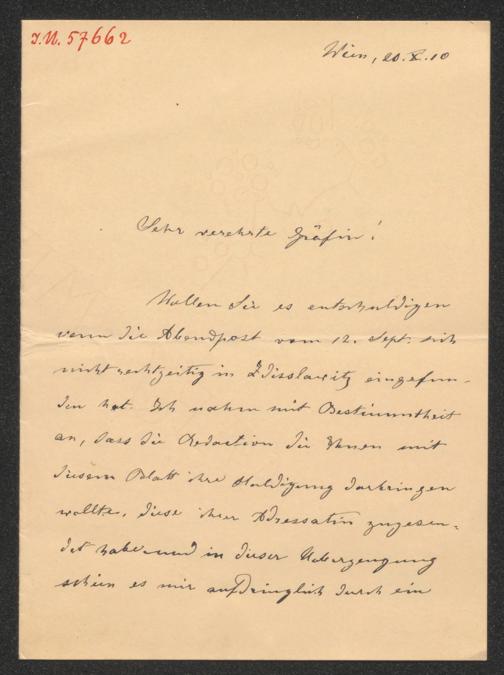 I.N. 57662
Wien, 20.X.10
Sehr verehrte Gräfin!
Wollen Sie es entschuldigen
wenn die Abendpost vom 12. Sept. sich
nicht rechtzeitig in Zdisslawitz eingefun-
den hat. Ich nahm mit Bestimmtheit
an, dass die Redaction die Ihnen mit
diesem Blatt ihre Huldigung darbringen
wollte, diese ihrer Adressatin zugesen-
det habe und in dieser Ueberzeugung
schien es mir aufdringlich durch ein